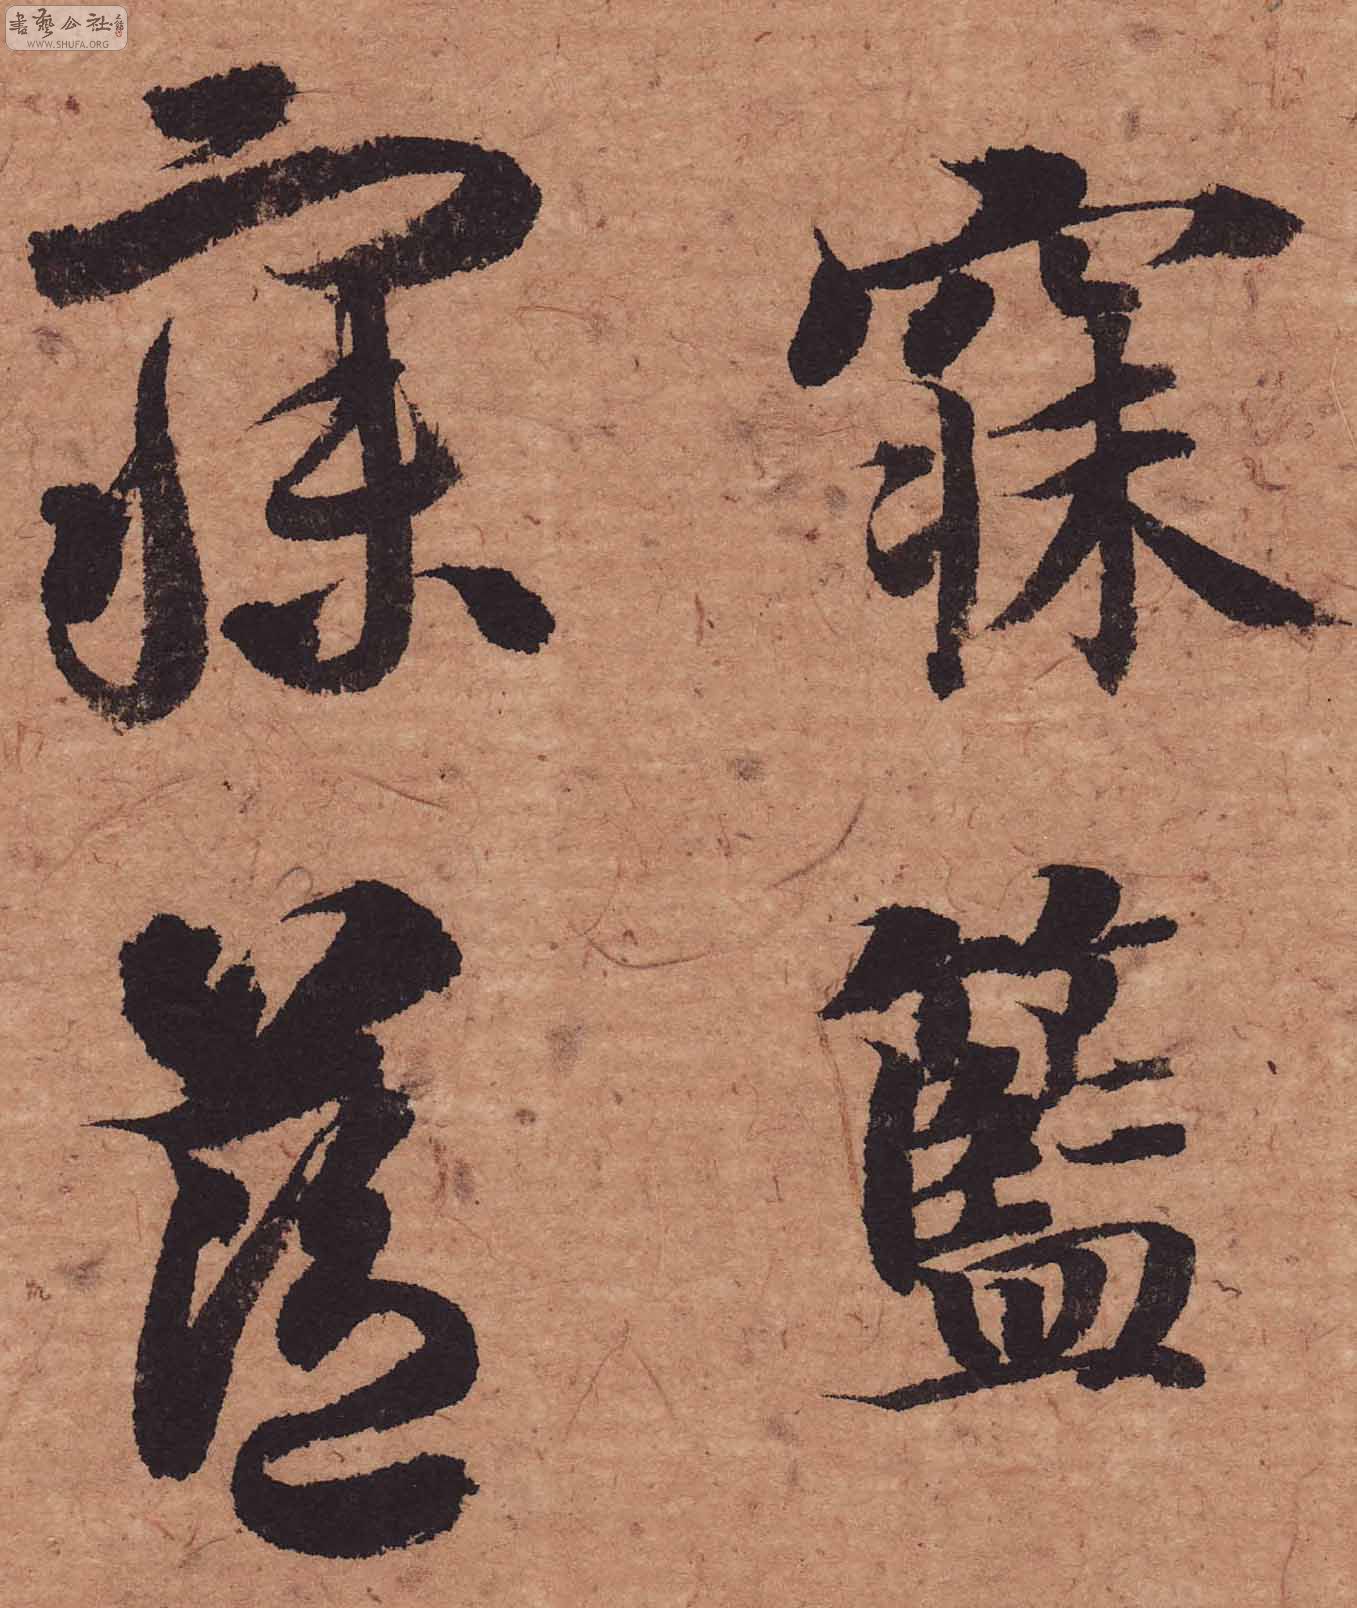 書藝公社
WWW.SHUFA.ORG
寐籃
寐藍